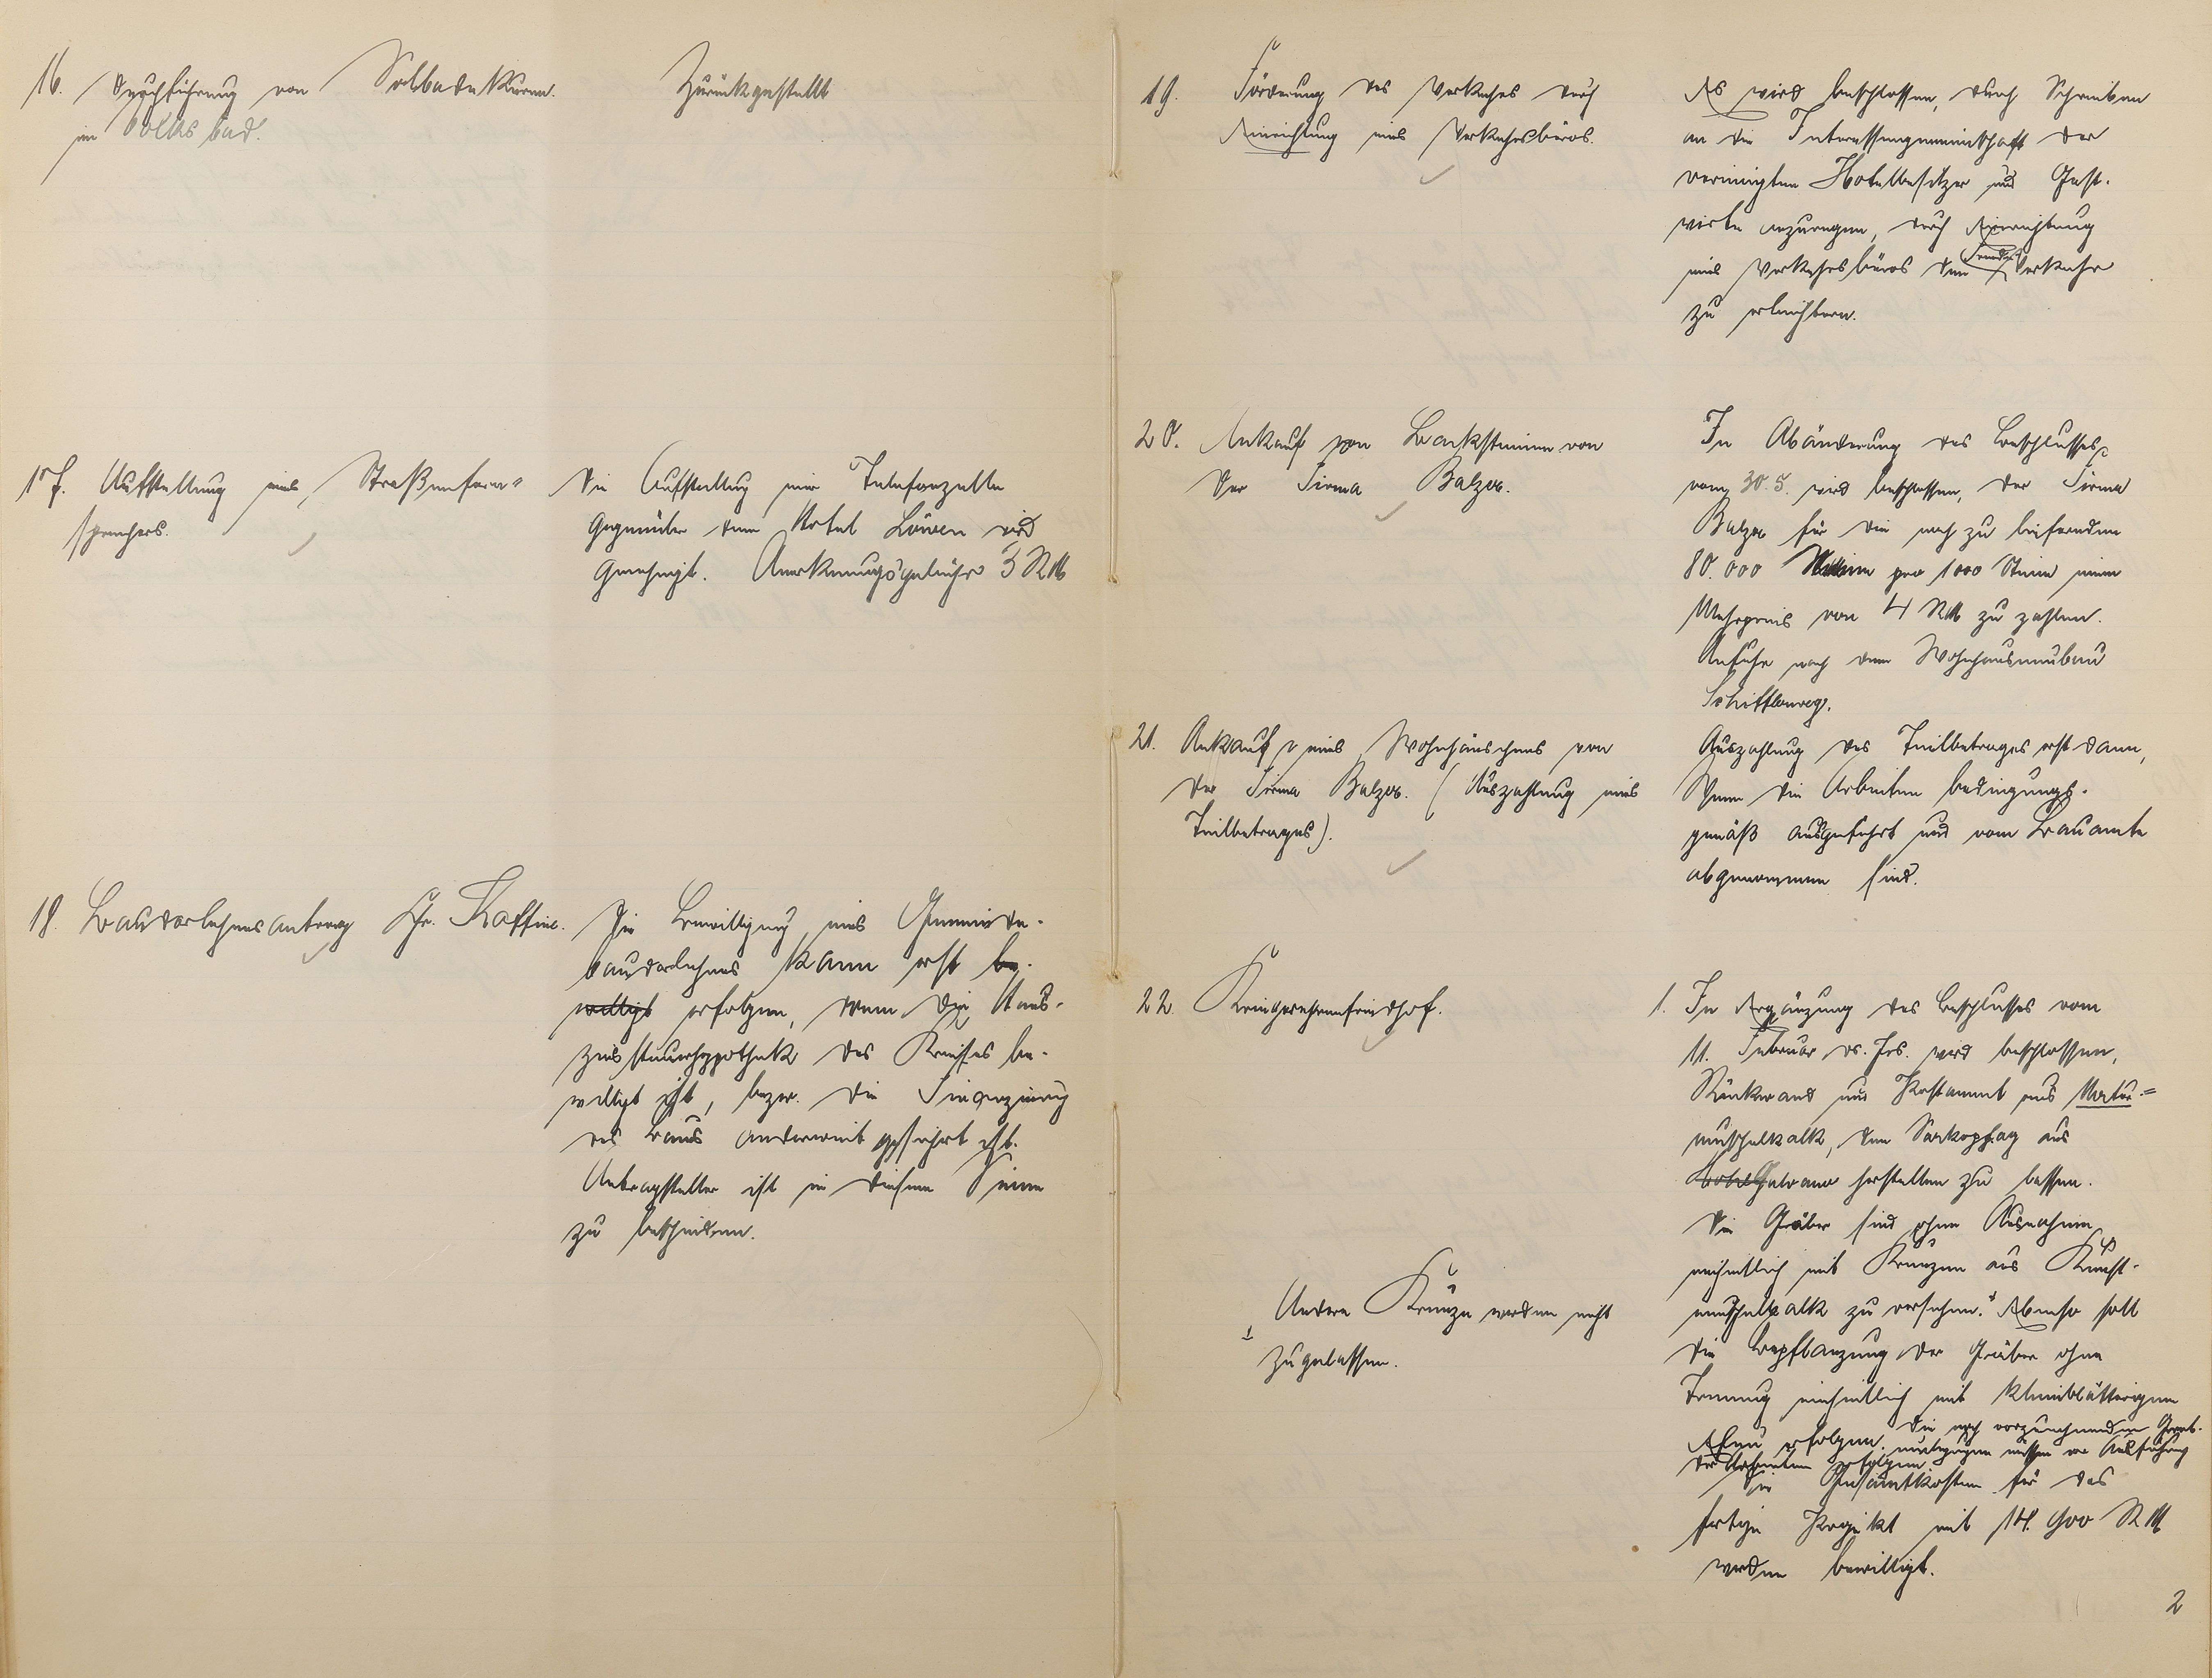 16. Durchführung von Solbadekuren
im Volksbad.
Zurückgestellt
17. Aufstellung eines Straßenfern-
sprechers.
Die Aufstellung einer Telefonzelle
gegenüber dem Hotel Löwen wird
genehmigt. Anerkennungsgebühr 3 RM
18. Baudarlehnsantrag Chr.
Die Bewilligung eines Gemeinde-
baudarlehnes kann erst be-
willigt erfolgen, wenn die Haus-
zinssteuerhypothek des Kreises be-
willigt ist, bezw. die Finanzierung
des Baus anderweit gesichert ist.
Antragsteller ist in diesem Sinne
zu bescheiden.
19. Förderung des Verkehrs durch
Einrichtung eines Verkehrsbüros.
Es wird beschlossen, durch Schreiben
an die Interessengemeinschaft der
vereinigten Hotelbesitzer und Gast-
wirte anzuregen, durch Einrichtung
eines Verkehrsbüros den Fremdenverkehr
zu erleichtern.
20. Ankauf von Backsteinen von
der Firma Balzer.
In Abänderung des Beschlusses
vom 30.5. wird beschlossen, der Firma
Balzer für die noch zu liefernden
80.000 Steine pro 1000 Steine einen
Mehrpreis von 4 RM zu zahlen.
Anfuhr nach dem Wohnhausneubau
Schiffbergweg.
21. Ankauf eines Wohnhäuschens von
der Firma Balzer. (Auszahlung eines
Teilbetrages).
Auszahlung des Teilbetrages erst dann,
wenn die Arbeiten bedingungs-
gemäß ausgeführt und vom Bauamte
abgenommen sind.
22. Kriegerehrenfriedhof.
1. In Ergänzung des Beschlusses vom
11. Februar ds. Jrs. wird beschlossen,
Rückwand und Postament aus Natur-
muschelkalk, den Sarkophag aus
herstellen zu lassen.
Die Gräber sind ohne Ausnahme
einheitlich mit Kreuzen aus Kunst-
muschelkalk zu versehen. Ebenso soll
die Bepflanzung der Gräber ohne
Trennung einheitlich mit kleinblätterigem
Efeu erfolgen. Die noch vorzunehmenden Grab-
müssen vor Ausführung
der Arbeiten erfolgen.
Die Gesamtkosten für das
fertige Projekt mit 14.900 RM
werden bewilligt.
Andere Kreuze werden nicht
zugelassen.
2